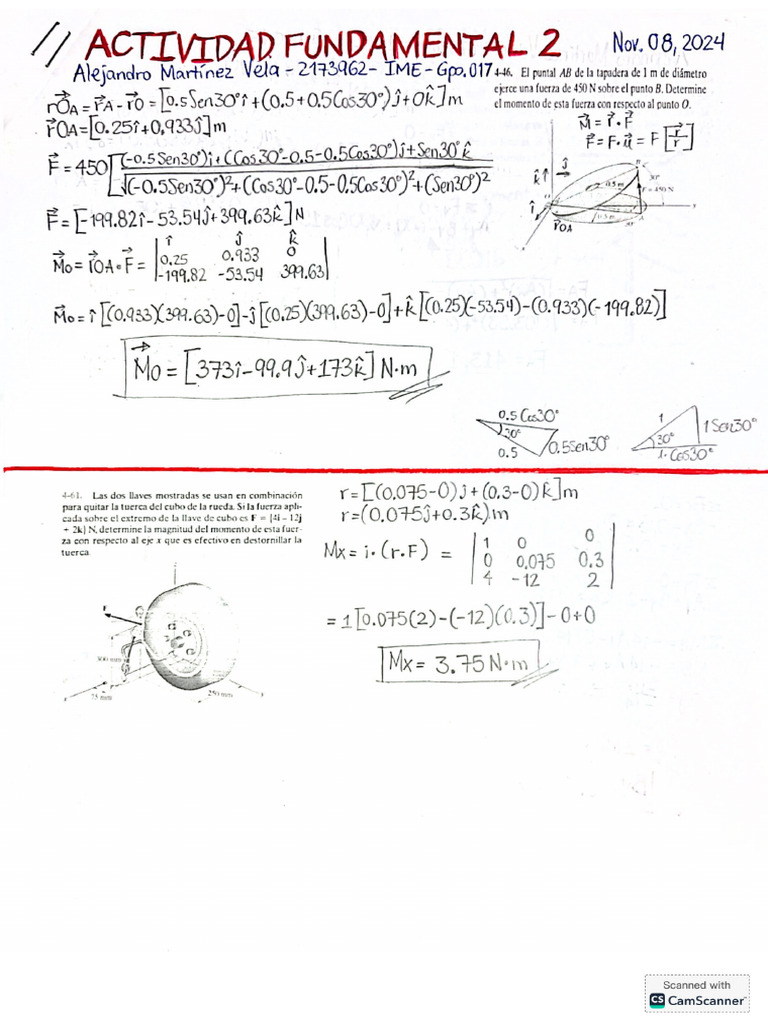 // ACTIVIDAD FUNDAMENTAL 2 Nov. 08, 2024
Alejandro Martínez Vela - 2173962 - IME - Gpo. 017
4-46. El puntal AB de la tapadera de 1 m de diámetro
ejerce una fuerza de 450 N sobre el punto B. Determine
el momento de esta fuerza con respecto al punto O.
M⃗ = r⃗ · F⃗
F⃗ = F · u⃗ = F [r⃗/r]
r⃗OA = r⃗A - r⃗O = [0.5Sen30° î + (0.5 + 0.5Cos30°)ĵ + 0k̂] m
r⃗OA = [0.25î + 0.933ĵ] m
F⃗ = 450 [(-0.5Sen30°)î + (Cos30° - 0.5 - 0.5Cos30°)ĵ + Sen30° k̂
√(-0.5Sen30°)² + (Cos30° - 0.5 - 0.5Cos30°)² + (Sen30°)²
F⃗ = [-199.82î - 53.54ĵ + 399.63k̂] N
M⃗o = r⃗OA · F⃗ = | î ĵ k̂
0.25 0.933 0
-199.82 -53.54 399.63 |
M⃗o = î [(0.933)(399.63) - 0] - ĵ [(0.25)(399.63) - 0] + k̂ [(0.25)(-53.54) - (0.933)(-199.82)]
M⃗o = [373î - 99.9ĵ + 173k̂] N·m
ĵ
k̂
î
B
30°
0.5 m
F = 450 N
O
y
A
0.5 m
30°
r⃗OA
x
0.5 Cos30°
30°
0.5
0.5Sen30°
1
30°
1 Sen30°
1·Cos30°
4-61. Las dos llaves mostradas se usan en combinación
para quitar la tuerca del cubo de la rueda. Si la fuerza apli-
cada sobre el extremo de la llave de cubo es F = {4i - 12j
+ 2k} N, determine la magnitud del momento de esta fuer-
za con respecto al eje x que es efectivo en destornillar la
tuerca.
r = [(0.075-0)j + (0.3-0)k] m
r = (0.075j + 0.3k) m
Mx = i·(r.F) = | 1 0 0
0 0.075 0.3
4 -12 2 |
= 1[0.075(2) - (-12)(0.3)] - 0 + 0
Mx = 3.75 N·m
F
300 mm
75 mm
250 mm
Scanned with
CS CamScanner